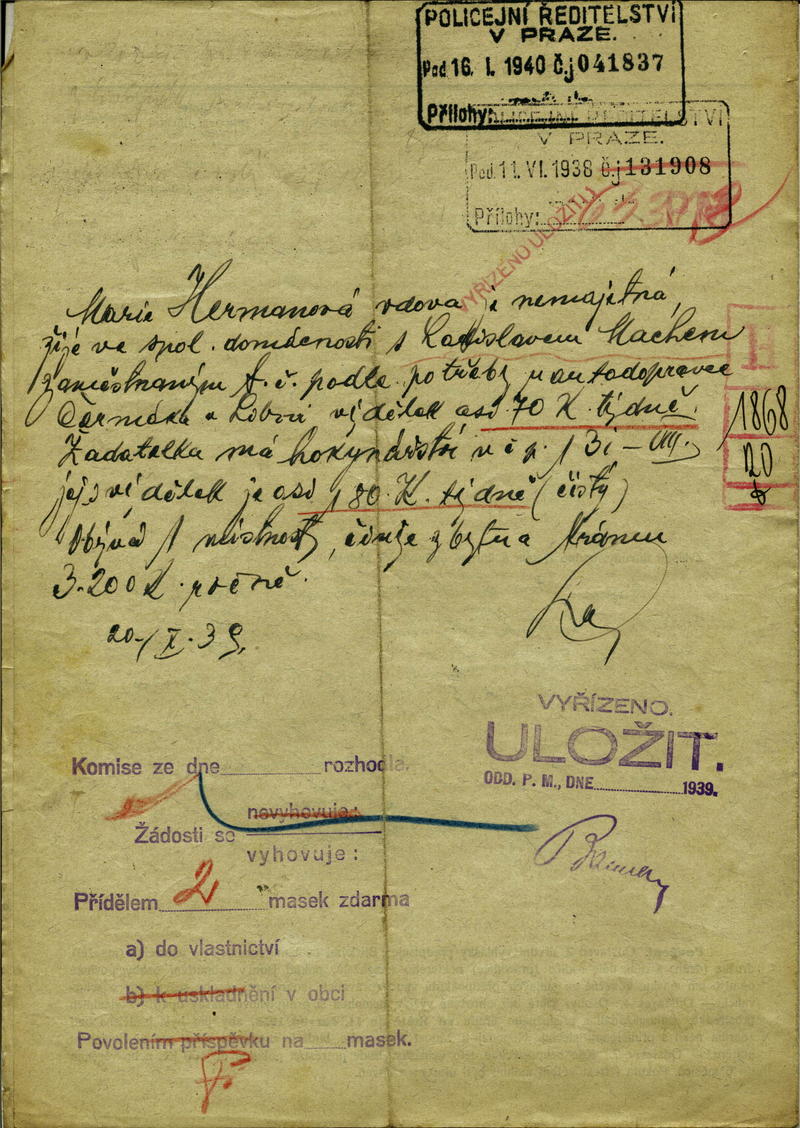 POLICEJNÍ ŘEDITELSTVÍ
V PRAZE.
Pod. 16. I. 1940 čj 041837
Přílohy:
POLICEJNÍ ŘEDITELSTVÍ
V PRAZE.
Pod. 11. VI. 1938 čj 131908
Přílohy:
VYŘÍZENO ULOŽITI
Marie Hermanová vdova je nemajetná,
žije ve spol. domácnosti s Ladislavem Machem
zaměstnaným t. č. podle potřeby u autodopravce
Čermáka v Libni výdělek asi 70 K. týdně.
Žadatelka má hokynářství v čp. 131 - VIII.
její výdělek je asi 180 K. týdně (čistý)
Obývá 1 místnost, činže z bytu a krámu
3.200 K. ročně.
20./X. 39.
H
1868
120
VYŘÍZENO.
ULOŽIT.
ODD. P. M., DNE 1939.
Komise ze dne rozhodla.
nevyhovuje:
Žádosti se
vyhovuje:
Přídělem 2 masek zdarma
a) do vlastnictví
b) k uskladnění v obci
Povolením příspěvku na masek.